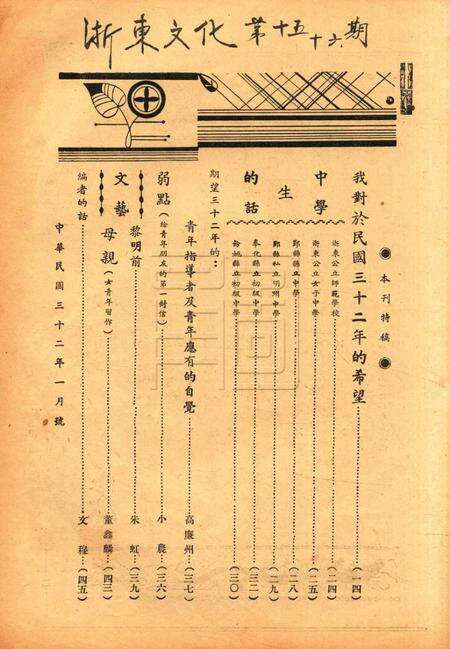 浙東文化 第十五十六期
本刊特稿
我對於民國三十二年的希望…(一四)
中學生的話
浙東公立師範學校…(二四)
浙東公立女子中學…(二五)
鄞縣縣立中學…(二八)
鄞縣私立明州中學…(二九)
奉化縣立初級中學…(三二)
餘姚縣立初級中學…(三〇)
期望三十二年的:
青年指導者及青年應有的自覺…高廉州…(三七)
弱點(給青年朋友的第一封信)…小農…(三六)
文藝
黎明前…朱虹…(三九)
母親(女青年習作)…董鑫麟…(四三)
編者的話…文穆…(四五)
中華民國三十二年一月號